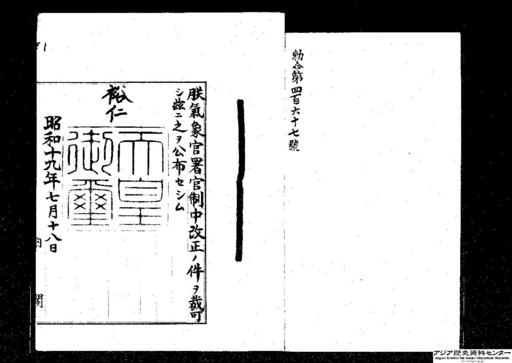 勅令第四百六十七號
朕氣象官署官制中改正ノ件ヲ裁可
シ茲ニ之ヲ公布セシム
裕仁
天皇
御璽
昭和十九年七月十八日
内閣
アジア歴史資料センター
Japan Center for Asian Historical Records